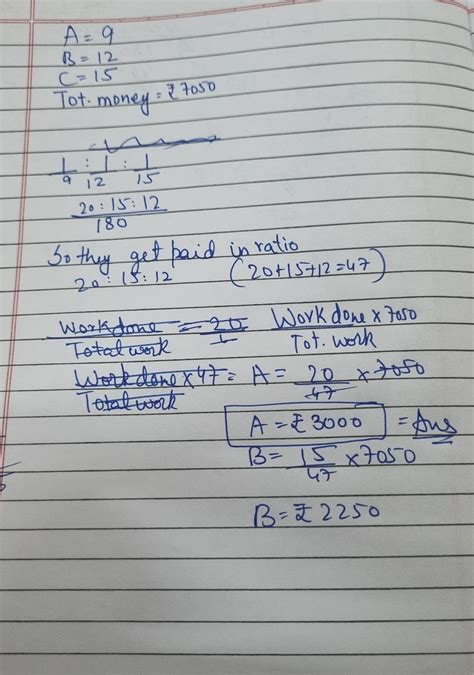 A = 9
B = 12
C = 15
Tot. money = ₹7050
1/9 : 1/12 : 1/15
20 : 15 : 12
180
So they get paid in ratio
20 : 15 : 12 (20+15+12=47)
Work done / Total work = 20/1 Work done × 7050 / Tot. work
Work done × 47 / Total work = A = 20/47 × 7050
A = ₹3000 = Ans
B = 15/47 × 7050
B = ₹2250